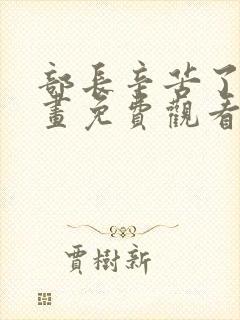 部長辛苦了
畫免費觀看
賈樹新